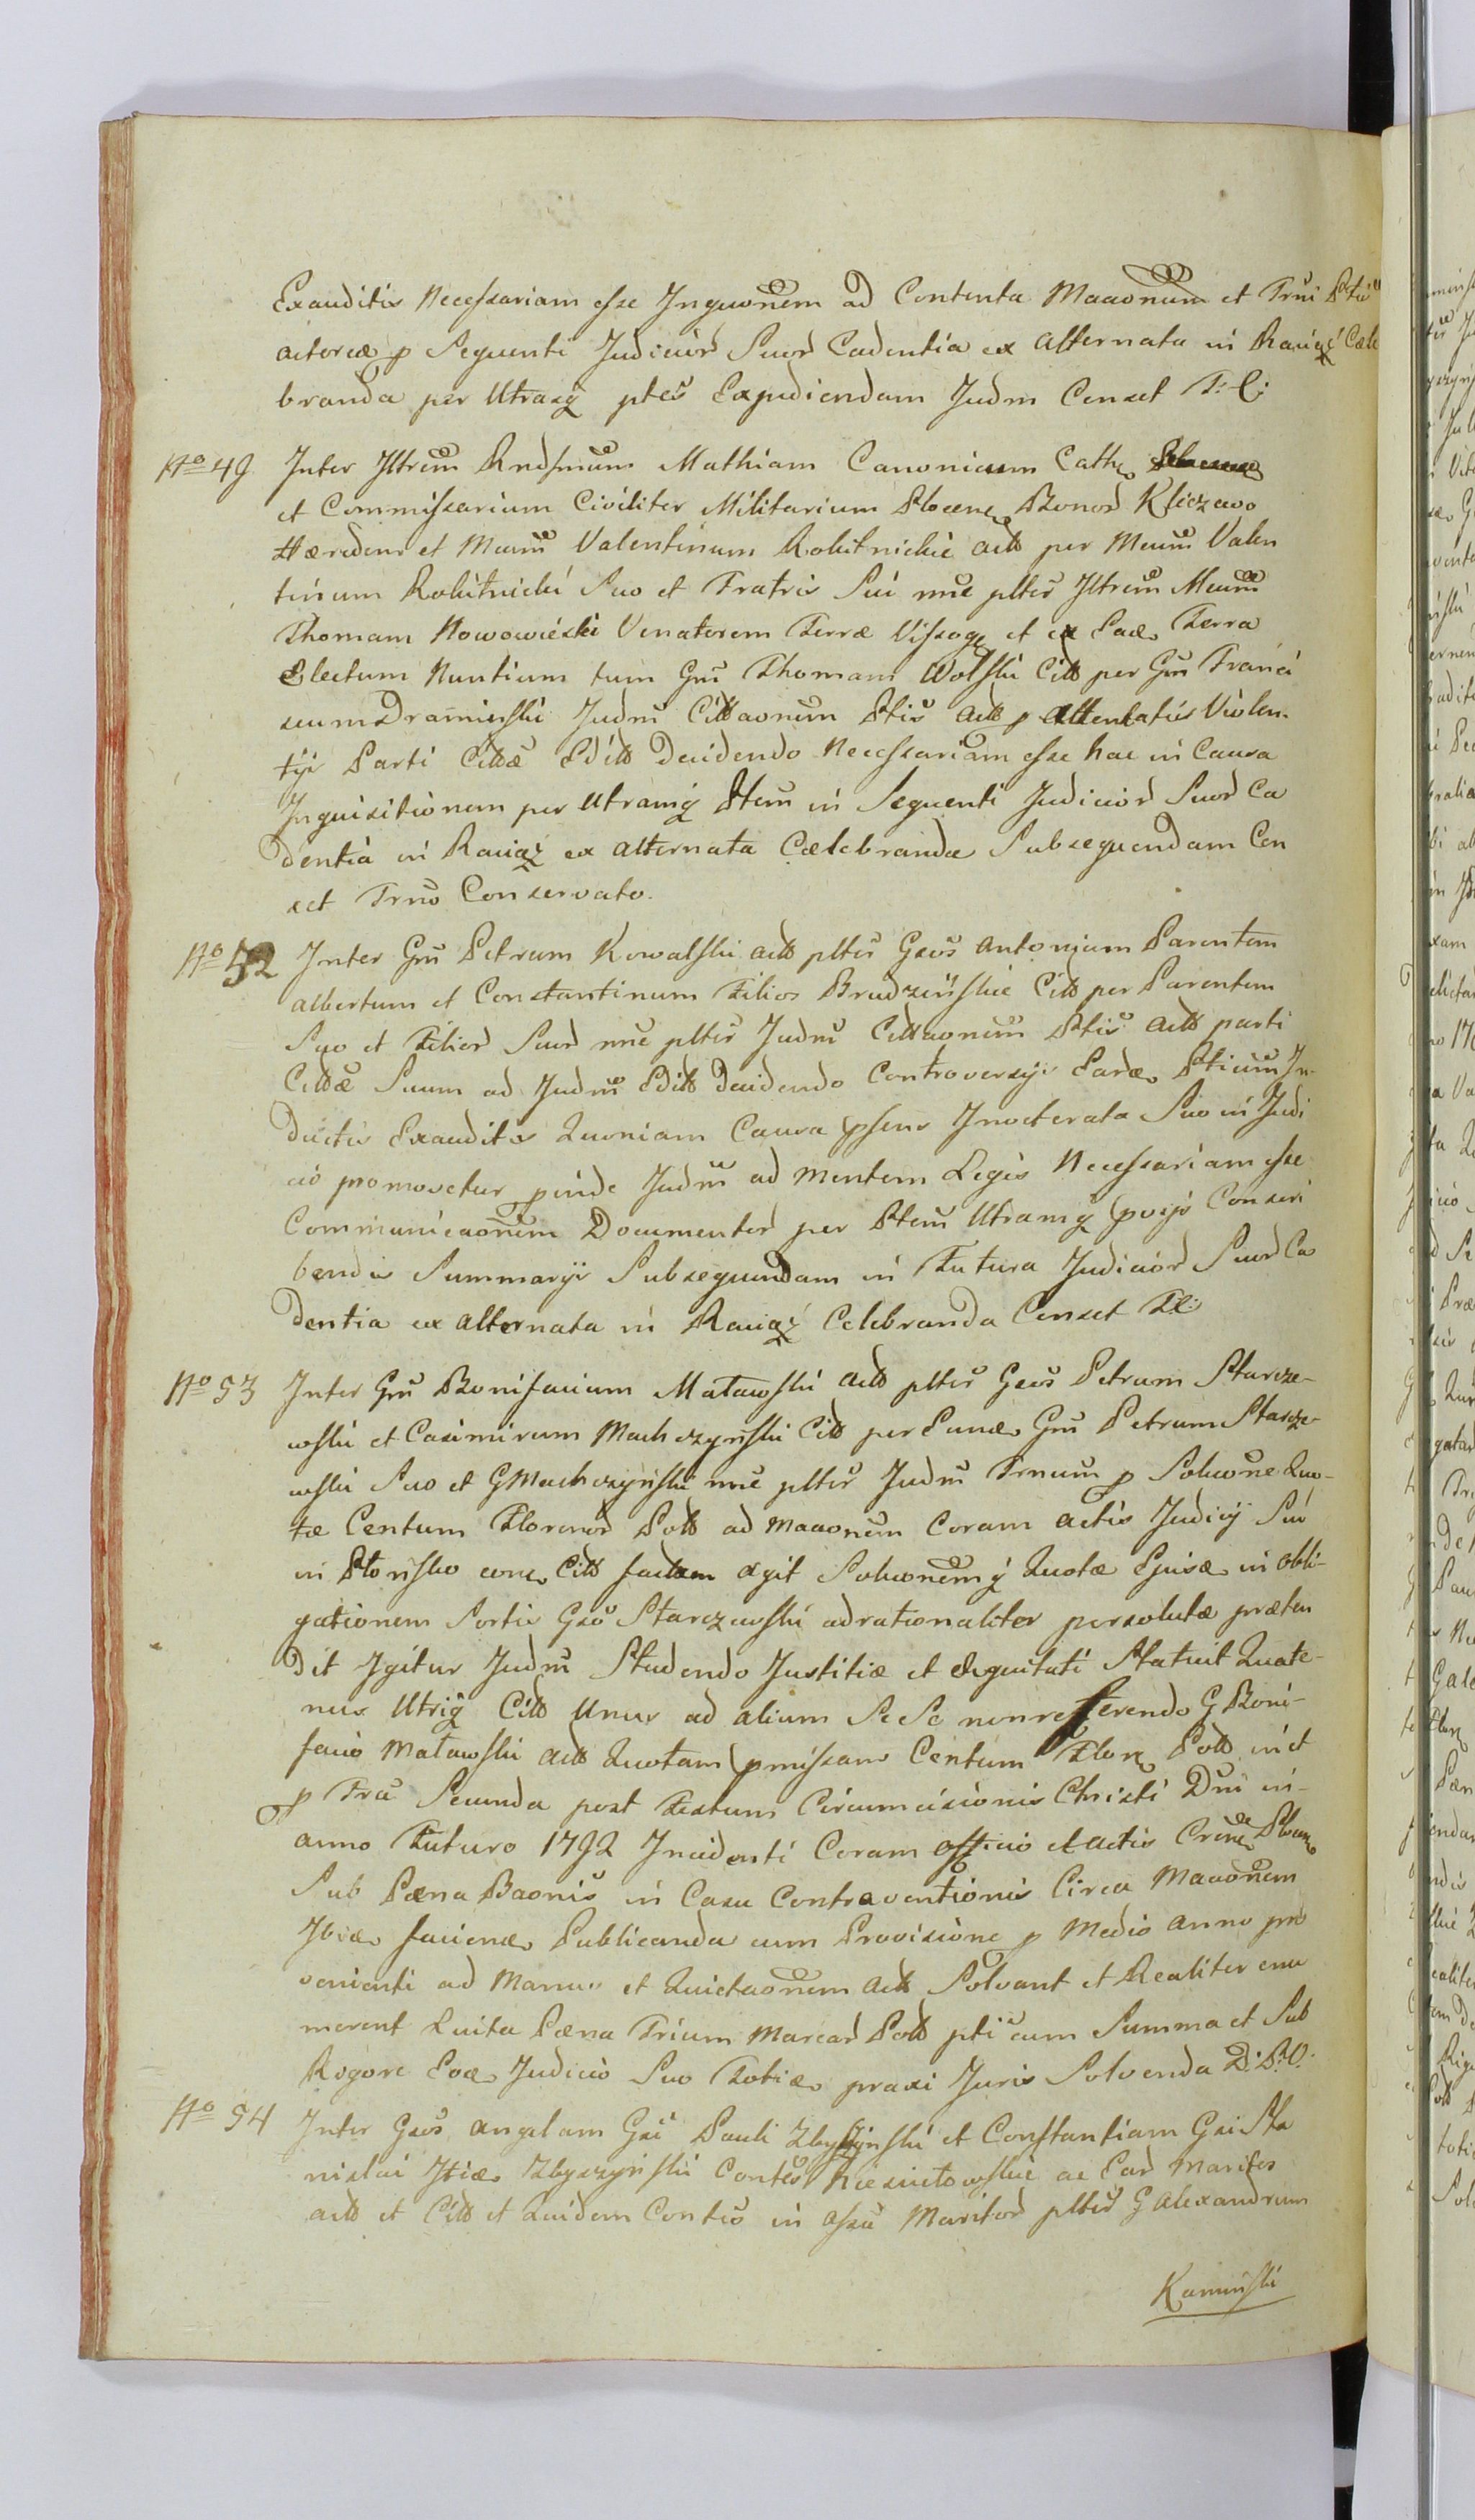 Exauditis Necessariam esse Inquõnem ad Contenta Maãonum et Trni Ptis
actoreæ p Sequenti Judicior Suor Cadentia ex alternata in Raciąż Cæle
branda per Utrasq ptes Expediendam Judm Censet T: C:
No 49 Inter Illrem Rndsmum Mathiam Canonicum Cath
et Commissarium Civiliter Militarium Plocens Bonor Kliczewo
Hæredem et Mcum Valentinum Rokitnickie actt per Mcum Valen
tinum Rokitnicki Suo et Fratris Sui nne pltes Illrem Mcum
Thomam Nowowieski Venatorem Terræ Vissog et ex Ead Terra
Electum Nuntium tum Gm Thomam Wolski Citt per Gm Franci
scum Dramiński Judm Cittaonum Ptis actt p attentatis Violen-
tijs Parti Cittæ Editt Decidendo Necessariam esse hac in Causa
Inquisitionem per Utramq Ptem in Sequenti Judicior Suor Ca
dentia in Raciąż ex alternata Cælebranda Subsequendam Cen
set Trno Conservato.
No 52 Inter Gm Petrum Kowalski actt pltes Gsos Antonium Parentem
albertum et Constantinum Filios Brudzińskie Citt per Parentem
Suo et Filior Suor nne pltes Judm Cittaonum Ptis actt parti
Cittæ Suum ad Judm Editt Decidendo Controversijs Eard Ptium In-
ductis Exauditis Quoniam Causa psens Inveterata Suo in Judi
cio promovetur pinde Judm ad mentem Legis Necessariam esse
Communicaonem Documentor per Ptem Utramq pvijs Conscri
bendis Summarijs Subsequendam in Futura Judicior Suor Ca
dentia ex alternata in Raciąż Celebranda Censet
No 53 Inter Gm Bonifacium Matawski actt pltes Gsos Petrum Starcze-
wski et Casimirum Machczyński Citt per Eund Gm Petrum Starcze-
wski Suo et G Machczyński nne pltes Judm Trnum p Soluone Quo-
tæ Centum Florenor Poll ad Maaonem Coram actis Judicij Sui
in Płońsko conc Citt factam agit Soluonemq Quotæ Ejusd in obli-
gationem Sortis Gso Starczewski adrationaliter persolutæ præten
dit Igitur Judm Studendo Justitiæ et Æquitati Statuit Quate-
nus Utriq Citt Unus ad alium Se Se non refferendo G Boni-
facio Matawski actt Quotam pmissam Centum Flor Poll in et
p Fra Secunda post Festum Circumcisionis Christi Dni in-
anno Futuro 1792 Incidenti Coram officio et actis
Sub Pæna Baonis in Casu Contraventionis Circa Maaonem
Ibid faciend Publicanda cum Provisione p Medio anno pro
venienti ad Manus et Quietaonem actt Solvant et Realiter enu
merent Luita Pæna Trium Marcar Poll pti cum Summa et Sub
Rigore Eod Judicio Suo Totid praxi Juris Solvenda
No 54 Inter Gsos angelam Gsi Pauli Zbyszyński et Constantiam Gsi Sta
nislai Itid Zbyszyński Contes Niesiułowskie ac Ear Maritos
actt et Citt et Quidem Contes in assa Maritor pltes G Alexandrum
Kamiński